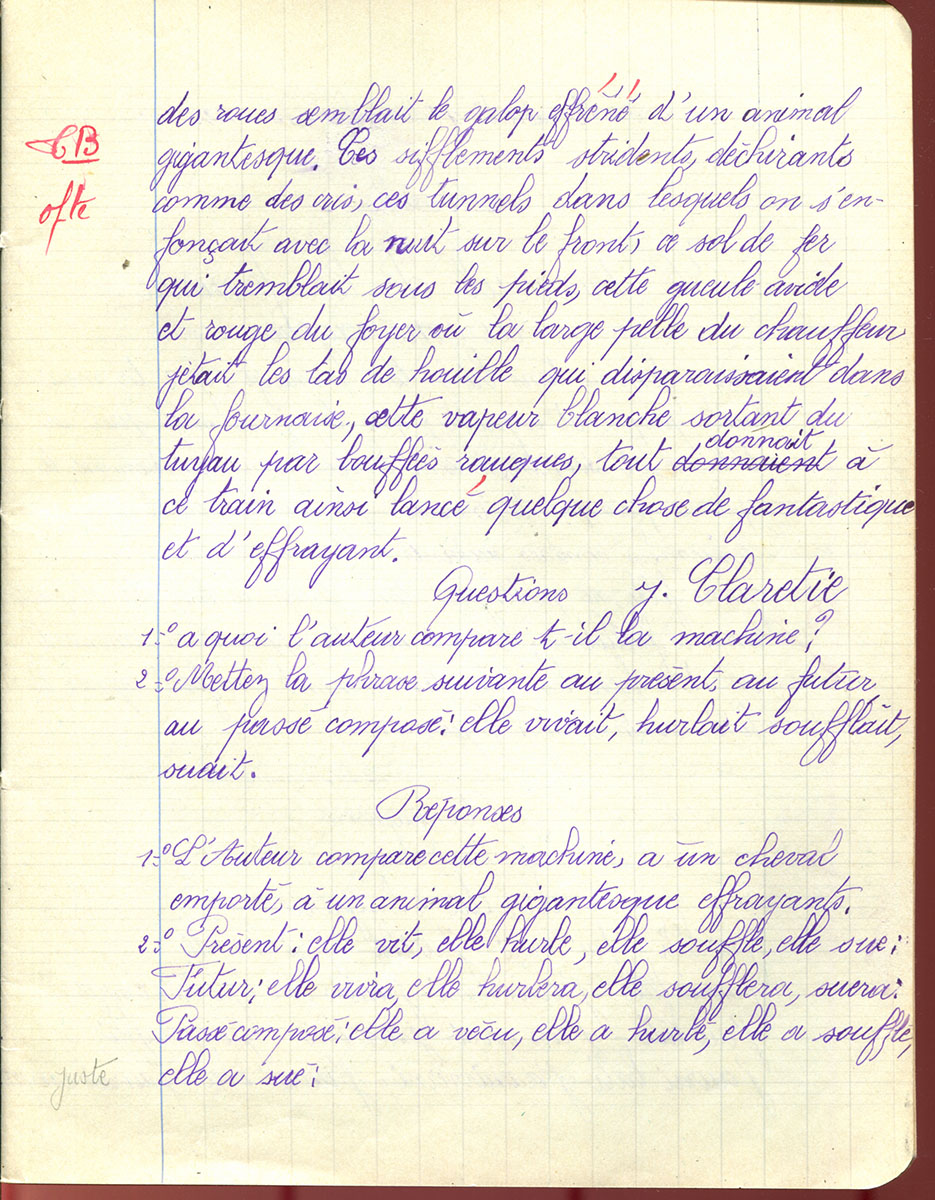 des roues semblait le galop effréné d'un animal
CB
gigantesque. Ces sifflements stridents, déchirants
ofte
comme des cris, ces tunnels dans lesquels on s'en-
fonçait avec la nuit sur le front, ce sol de fer
qui tremblait sous les pieds, cette gueule avide
et rouge du foyer où la large pelle du chauffeur
jetait les tas de houille qui disparaissaient dans
la fournaise, cette vapeur blanche sortant du
donnait
tuyau par bouffées rauques, tout donnaient à
ce train ainsi lancé quelque chose de fantastique
et d'effrayant.
Questions J. Claretie
1-º a quoi l'auteur compare t-il la machine?
2-º Mettez la phrase suivante au présent, au futur,
au passé composé: elle vivait, hurlait soufflait,
suait.
Réponses
1-º L'Auteur compare cette machine, a un cheval
emporté, à un animal gigantesque effrayants.
2-º Présent: elle vit, elle hurle, elle souffle, elle sue;
Futur; elle vivra, elle hurlera, elle soufflera, suera:
Passé composé: elle a vécu, elle a hurlé, elle a soufflé,
juste
elle a sué;